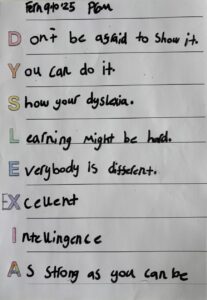 Don't be afraid to show it.
You can do it.
Show your dyslexia.
Learning might be hard.
Everybody is different.
EXcellent
Intellingence
As strong as you can be